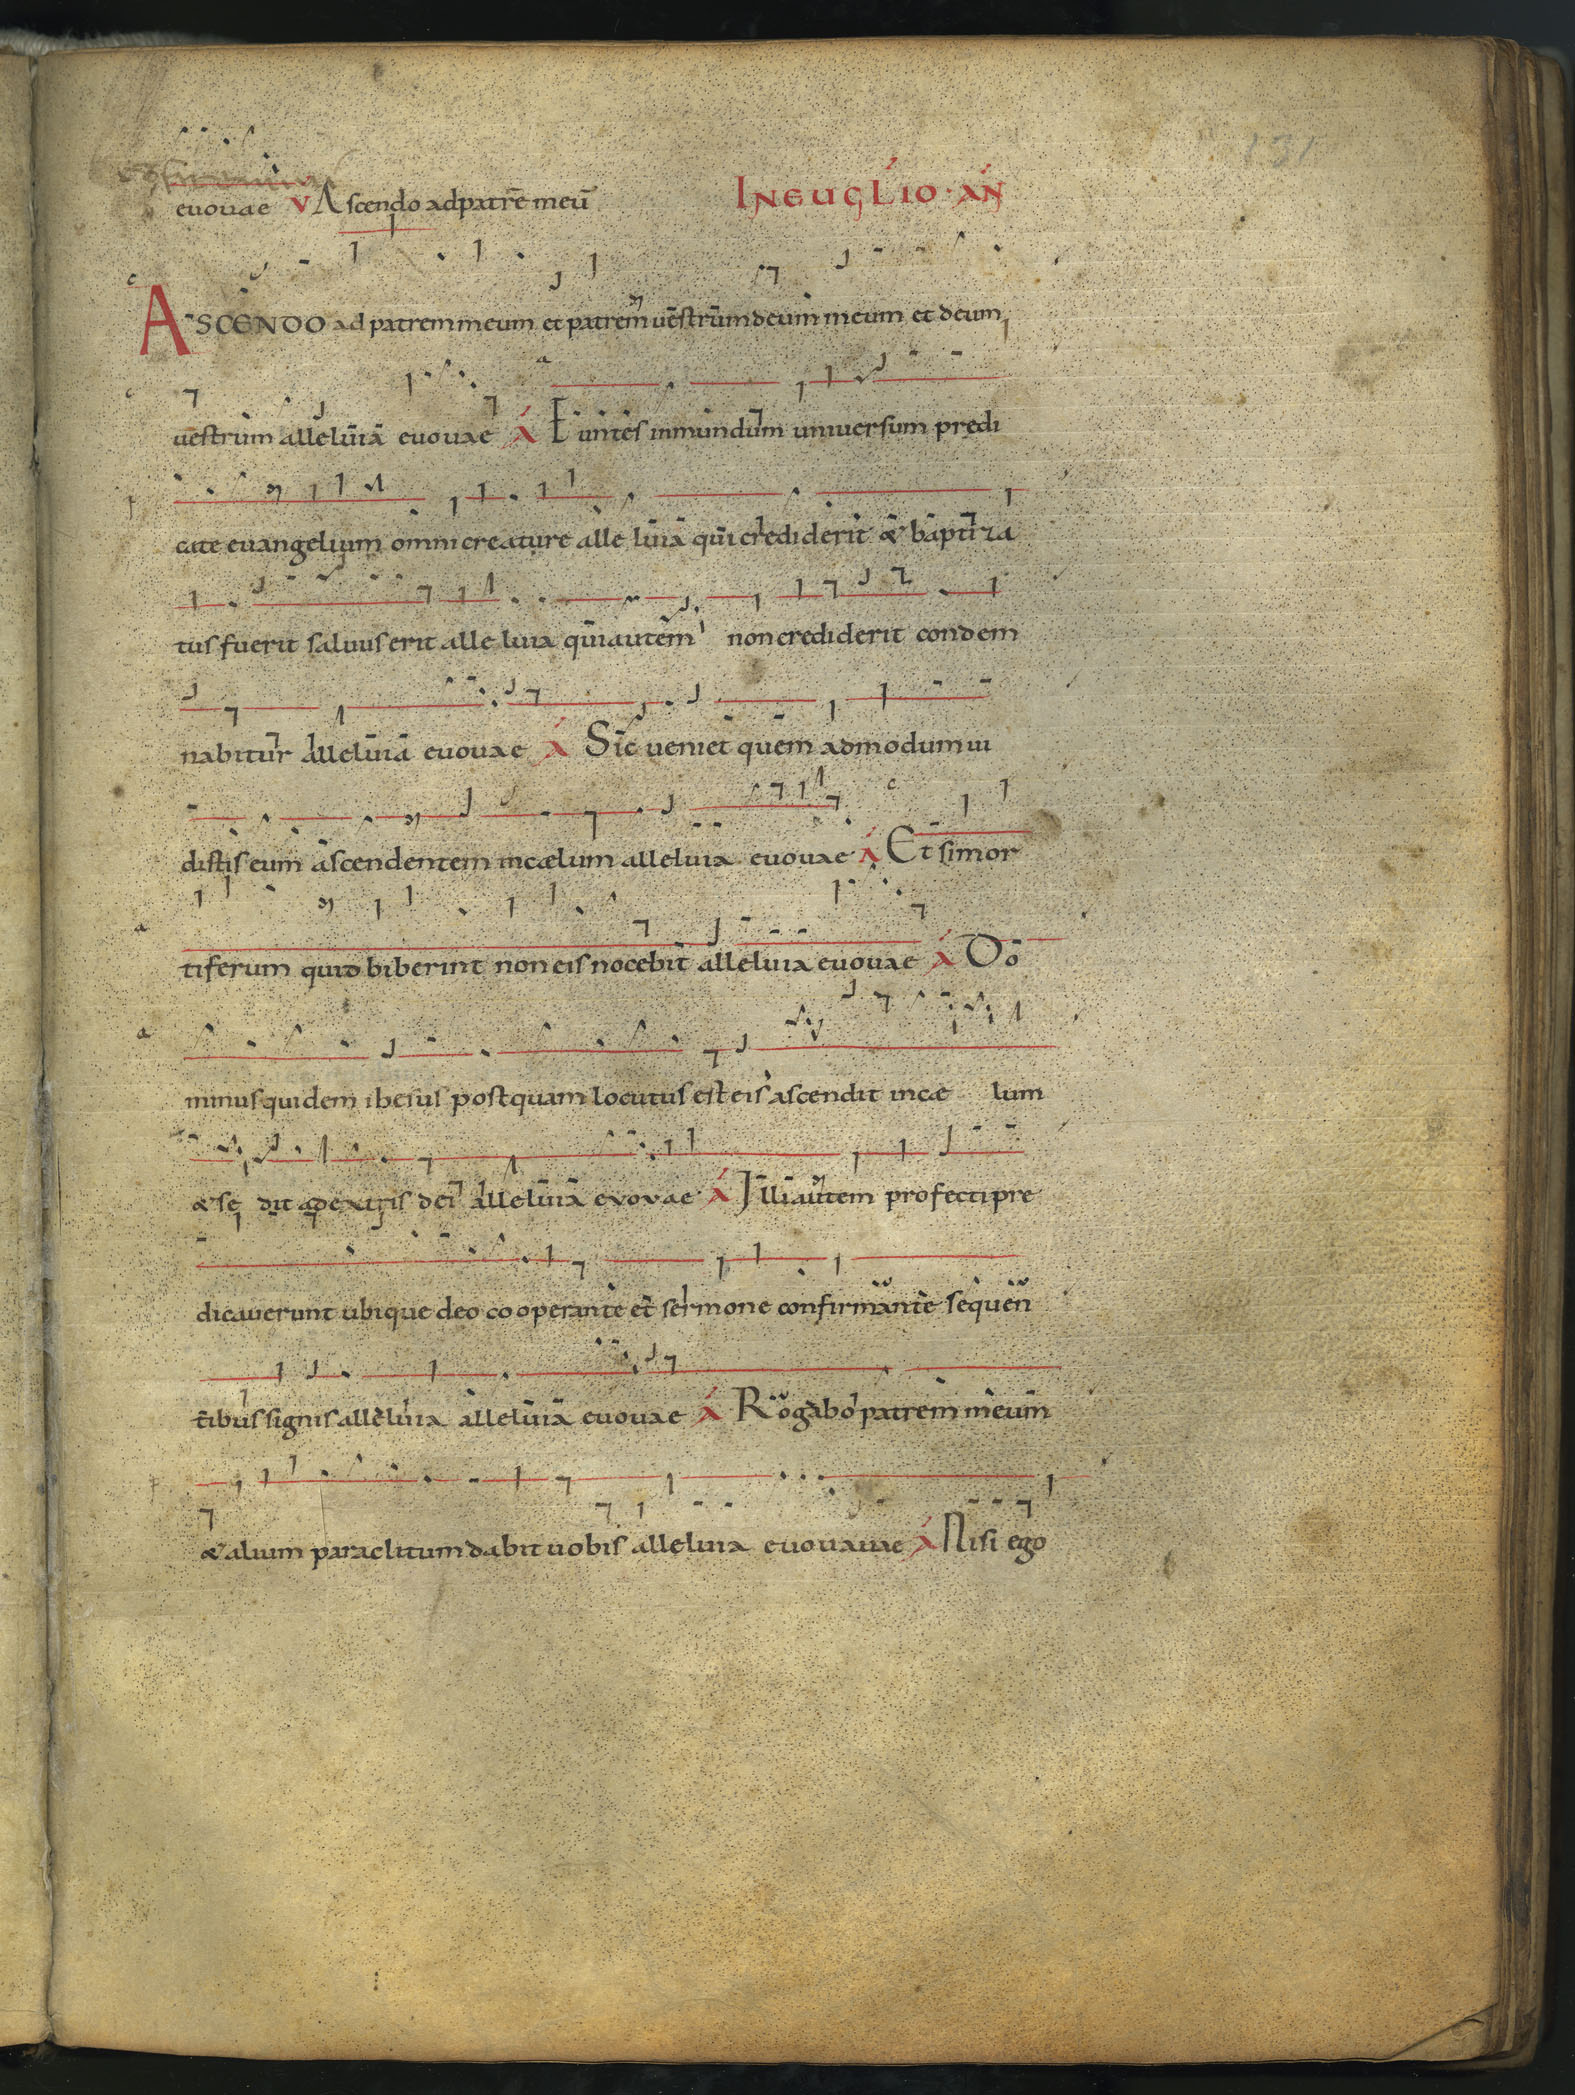 131
euouae V Ascendo ad patrē meū IN EUGLIO · AN
c
ASCENDO ad patrem meum et patrem vestrum deum meum et deum
vestrum alleluia euouae A Euntes in mundum universum predi
cate euangelium omni creature alleluia qui crediderit & baptiza
tus fuerit saluus erit alleluia qui autem non crediderit condem
nabitur alleluia euouae A Sic ueniet quem admodum ui
distis eum ascendentem in cælum alleluia euouae A Et si mor
tiferum quid biberint non eis nocebit alleluia euouae A Do
minus quidem ihesus postquam locutus est eis ascendit in cæ lum
& se dit ad extris dei alleluia evovae A Illi autem profecti pre
dicauerunt ubique deo cooperante et sermone confirmante sequen
tibus signis alleluia alleluia euouae A Rogabo patrem meum
& alium paraclitum dabit uobis alleluia euouauae A Nisi ego